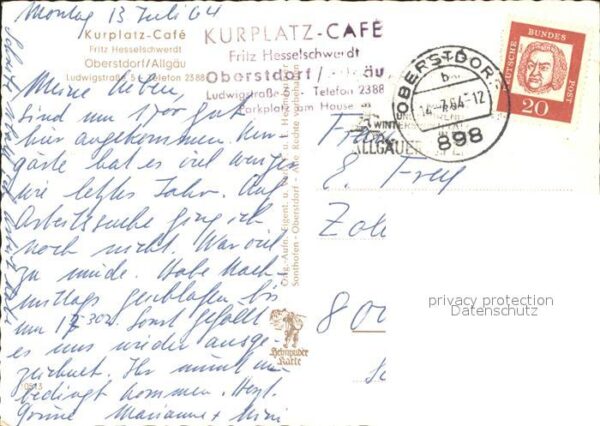 Montag 13 Juli 64
Kurplatz-Café
Fritz Hesselschwerdt
Oberstdorf/Allgäu
Ludwigstraße 5 · Telefon 2388
KURPLATZ-CAFÉ
Fritz Hesselschwerdt
Oberstdorf/Allgäu
Ludwigstraße · Telefon 2388
Parkplatz am Hause
OBERSTDORF
b
14.-7.64.-12
898
WINTERS
ALLGÄUER
DEUTSCHE BUNDES POST
20
Meine Lieben,
Sind um 1700 gut
hier angekommen. Kur-
gäste hat es viel weniger
wie letztes Jahr. Auf
Arbeitssuche ging ich
noch nicht. War viel
zu müde. Habe Nach-
mittags geschlafen bis
um 17 30. Sonst gefällt
es uns wieder ausge-
zeichnet. Ihr müsst un-
bedingt kommen. Herzl.
Grüsse Marianne + Mimi
Orig.-Aufn., Eigent. u.
Sonthofen - Oberstdorf - Alle Rechte vorbehalten
Heimhuber
Karte
E. Frey
Zol
800
privacy protection
Datenschutz